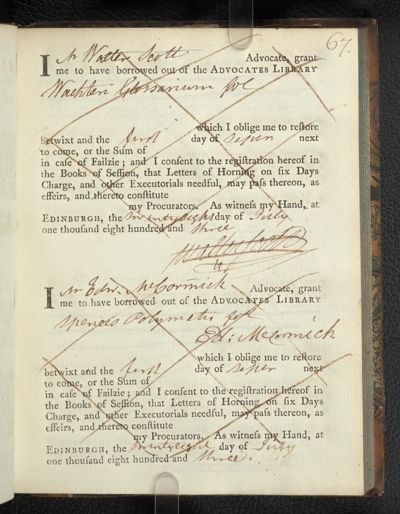 67.
I Mr Walter Scott Advocate, grant
me to have borrowed out of the ADVOCATES LIBRARY
Wachteri Glossarium fol
which I oblige me to restore
betwixt and the first day of Septr next
to come, or the Sum of
in case of Failzie; and I consent to the registration hereof in
the Books of Session, that Letters of Horning on six Days
Charge, and other Executorials needful, may pass thereon, as
effeirs, and thereto constitute
my Procurators. As witness my Hand, at
EDINBURGH, the twenty eight day of July
one thousand eight hundred and three
Walter Scott
I Mr Edw. McCormick Advocate, grant
me to have borrowed out of the ADVOCATES LIBRARY
Spences Polymetis fol
Ed: McCormick
which I oblige me to restore
betwixt and the first day of Septr next
to come, or the Sum of
in case of Failzie; and I consent to the registration hereof in
the Books of Session, that Letters of Horning on six Days
Charge, and other Executorials needful, may pass thereon, as
effeirs, and thereto constitute
my Procurators. As witness my Hand, at
EDINBURGH, the twenty eight day of July
one thousand eight hundred and three.